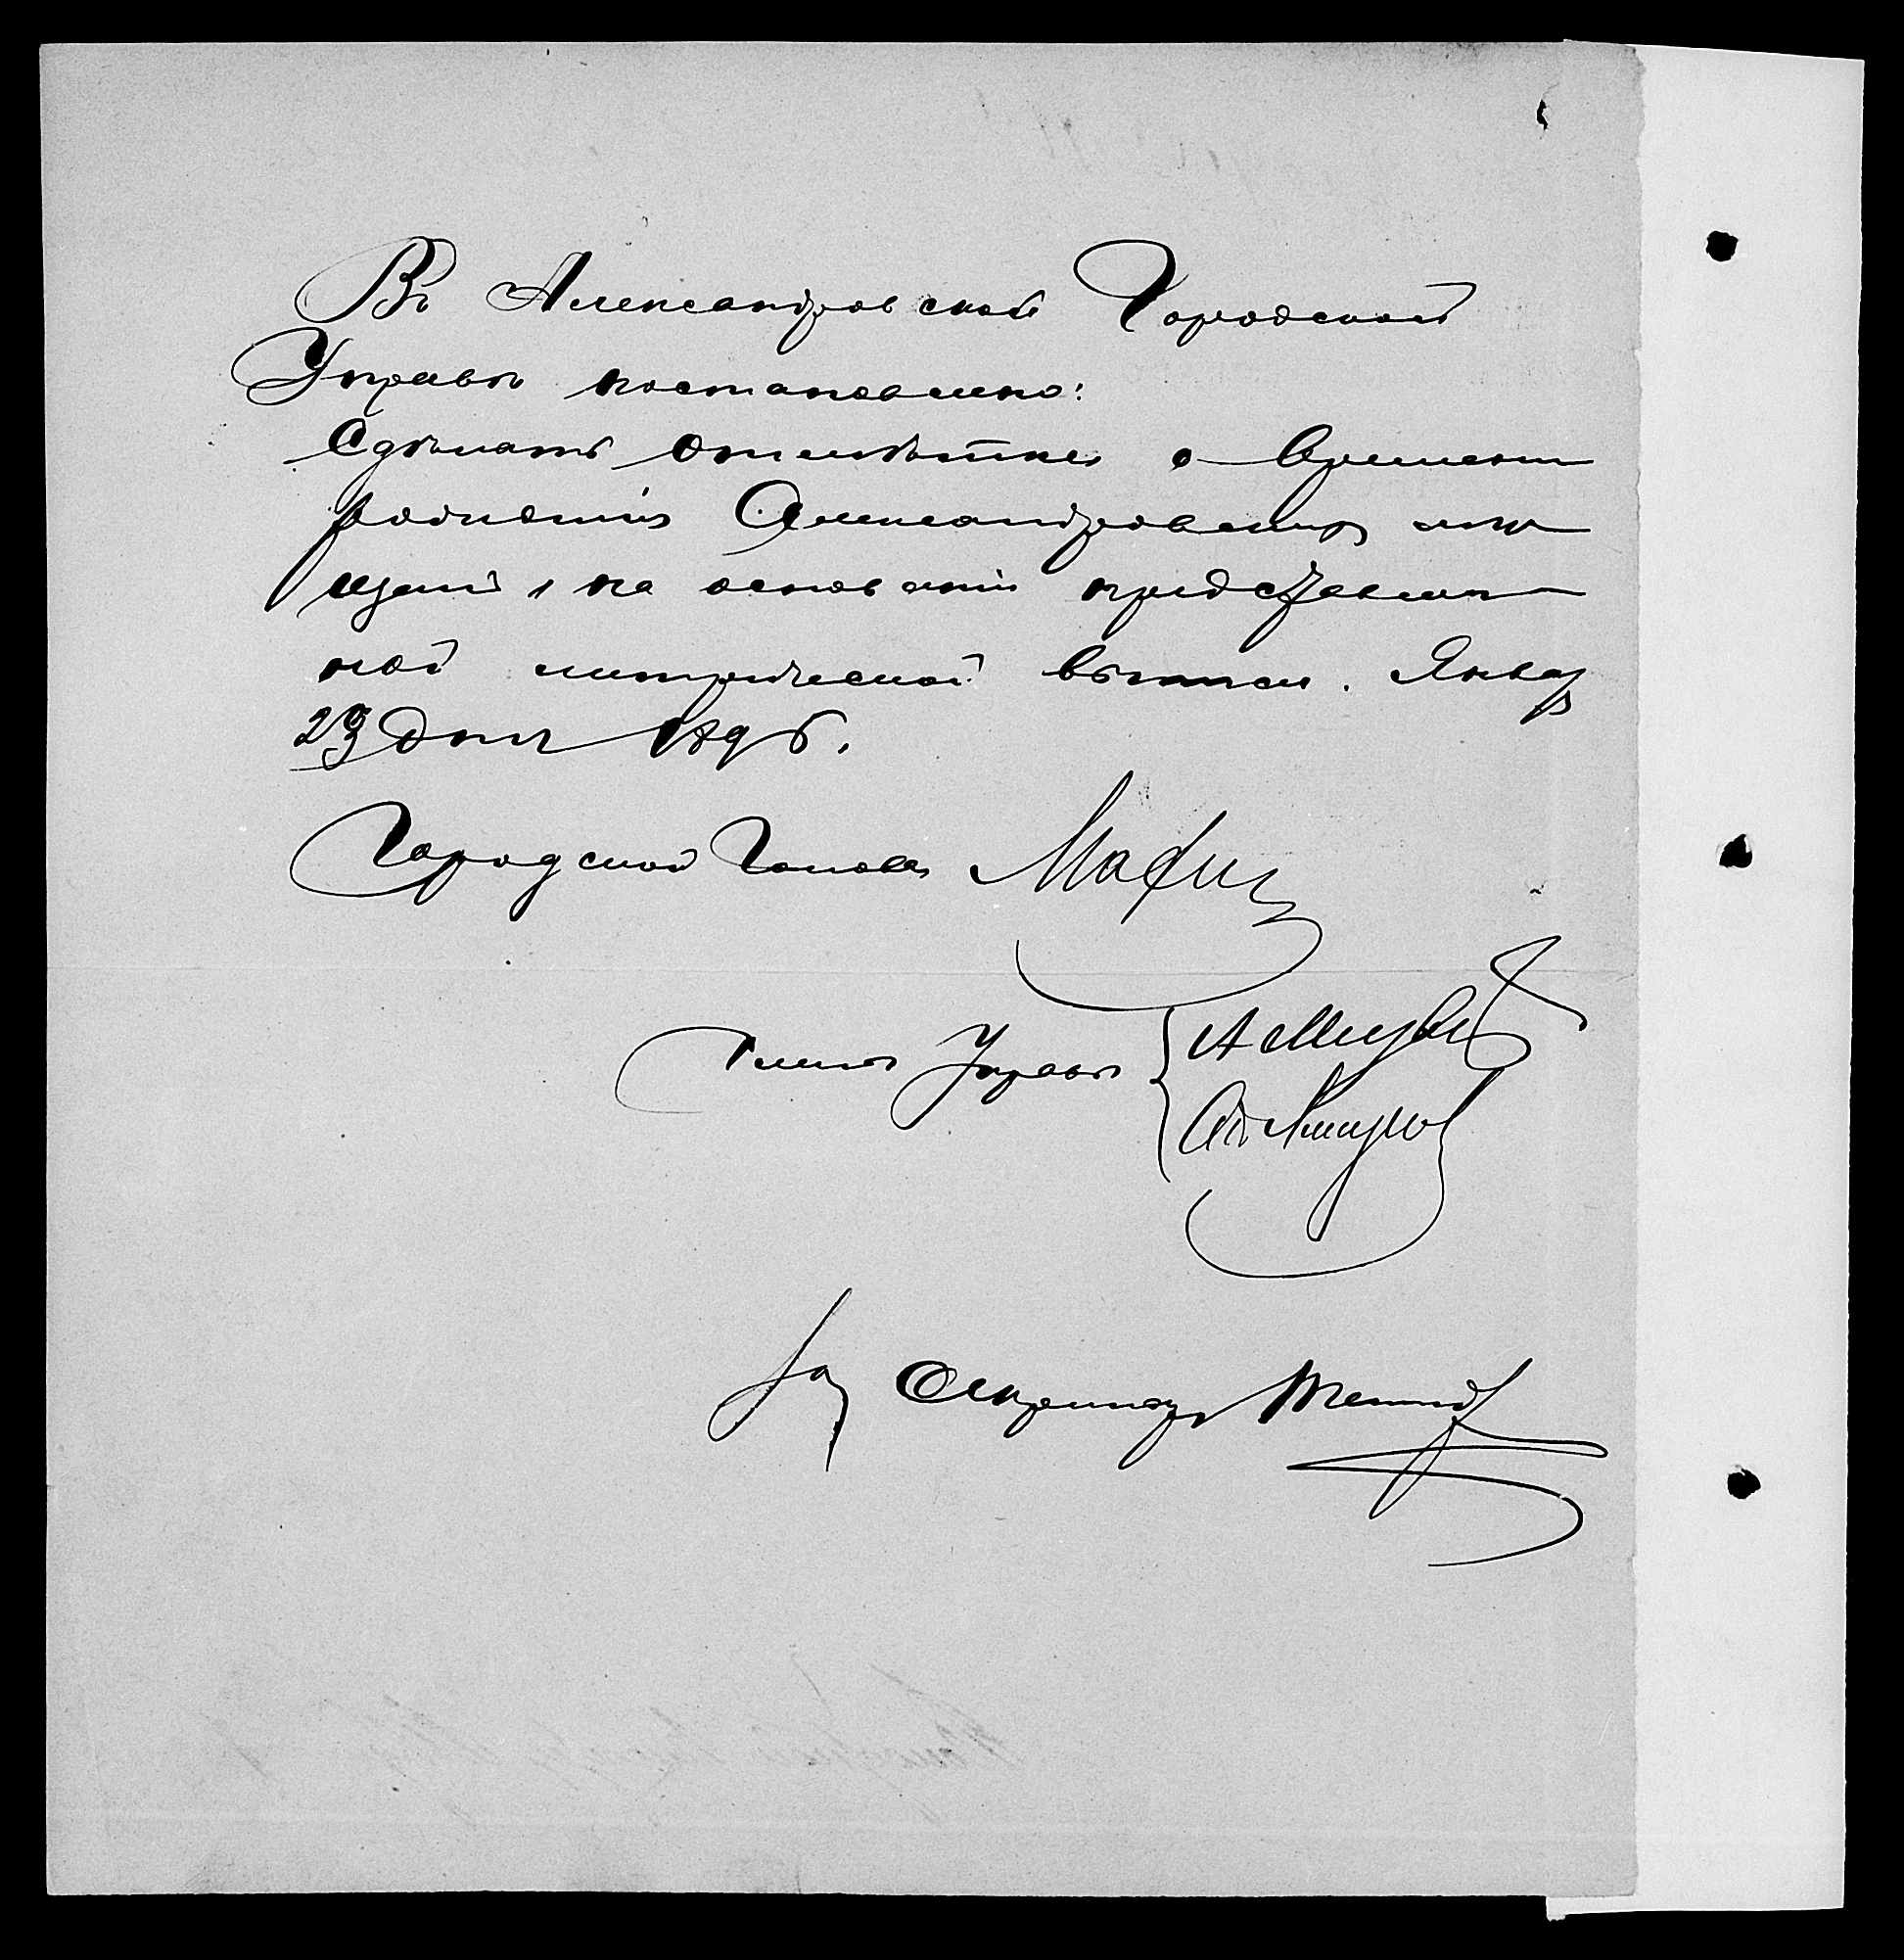 Въ Александровской Городской
Управѣ постановлено:
Сдѣлать отмѣтки о времени
рожденія Александровскихъ мѣ
щанъ, на основаніи представлен
ной метрической выписи. Январ
23 дня 1896.
Городской Голова
Члены Управы
За Секретаря